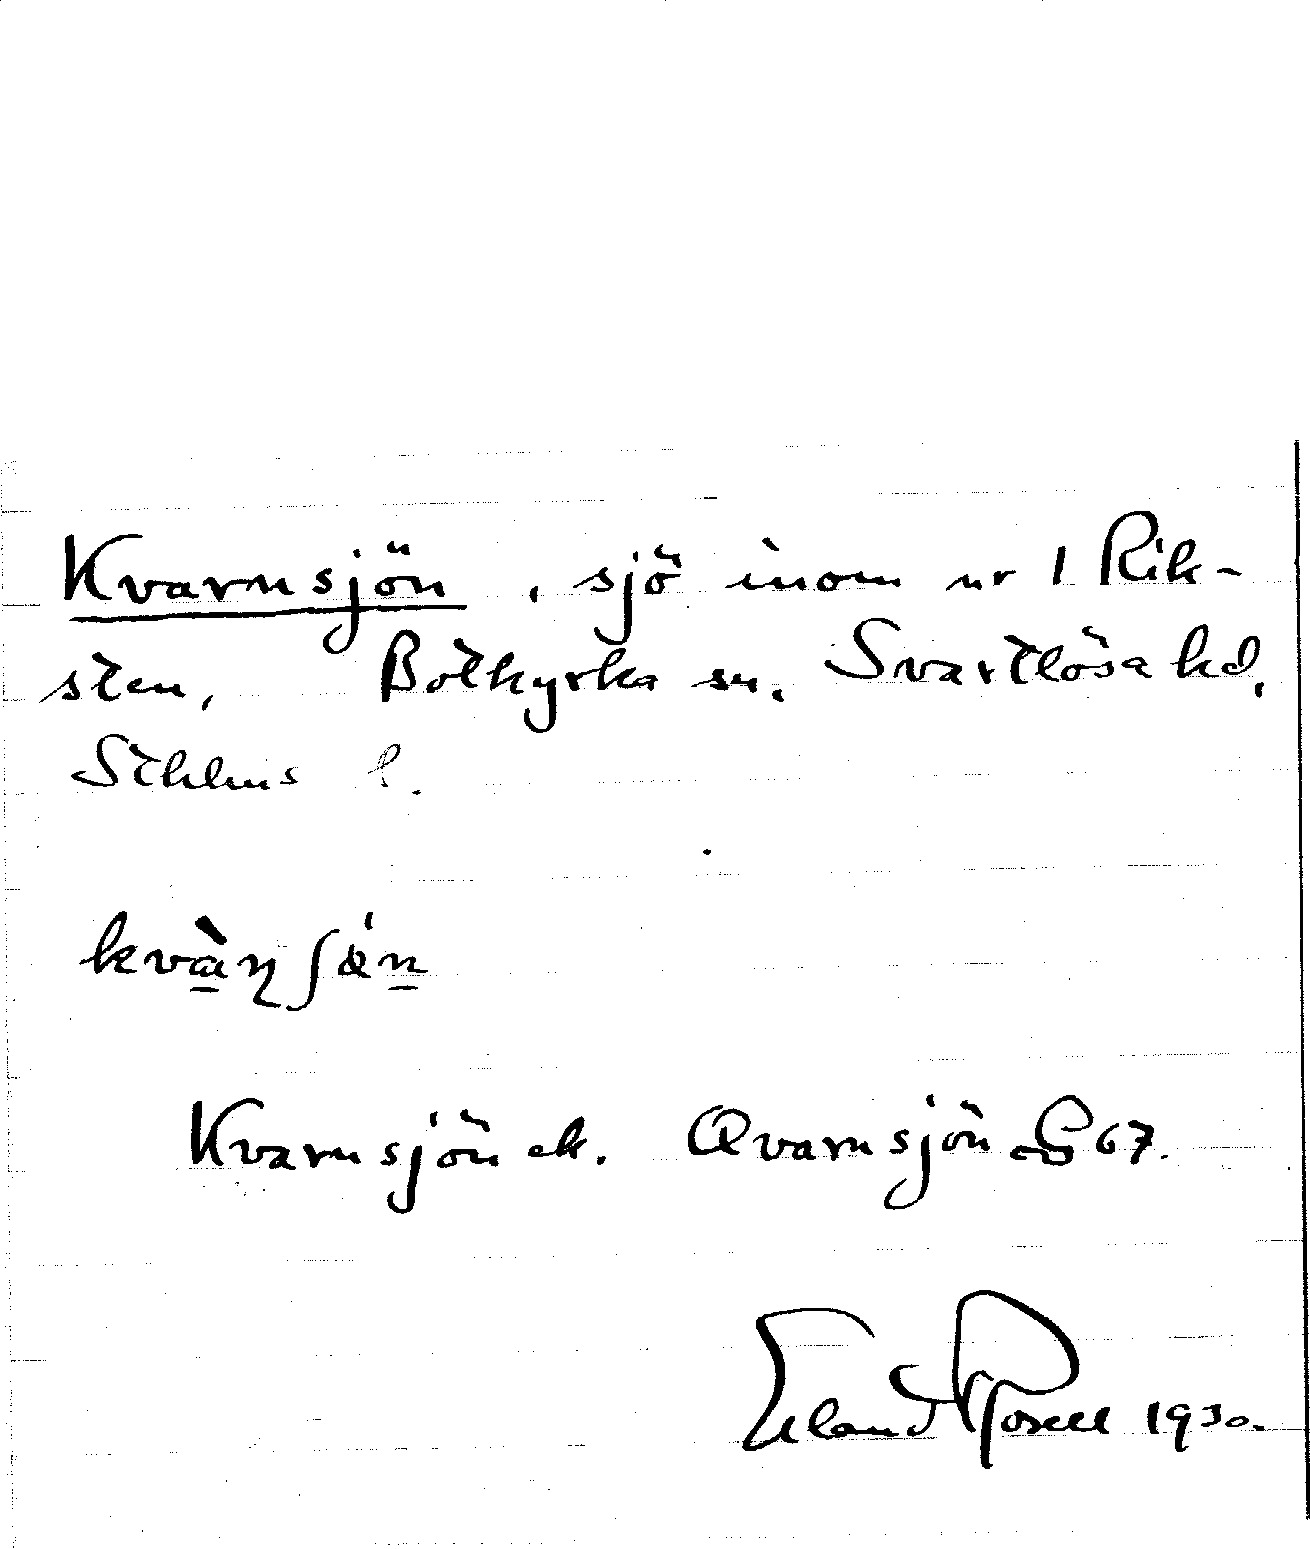 Kvarnsjön, sjö inom nr 1 Rik-
sten, Botkyrka sn. Svartlösa hd,
Sthlms l.
kvàɳʃɷ́n
Kvarnsjön ek. Qvarnsjön GS 67.
Erland Rosell 1930.